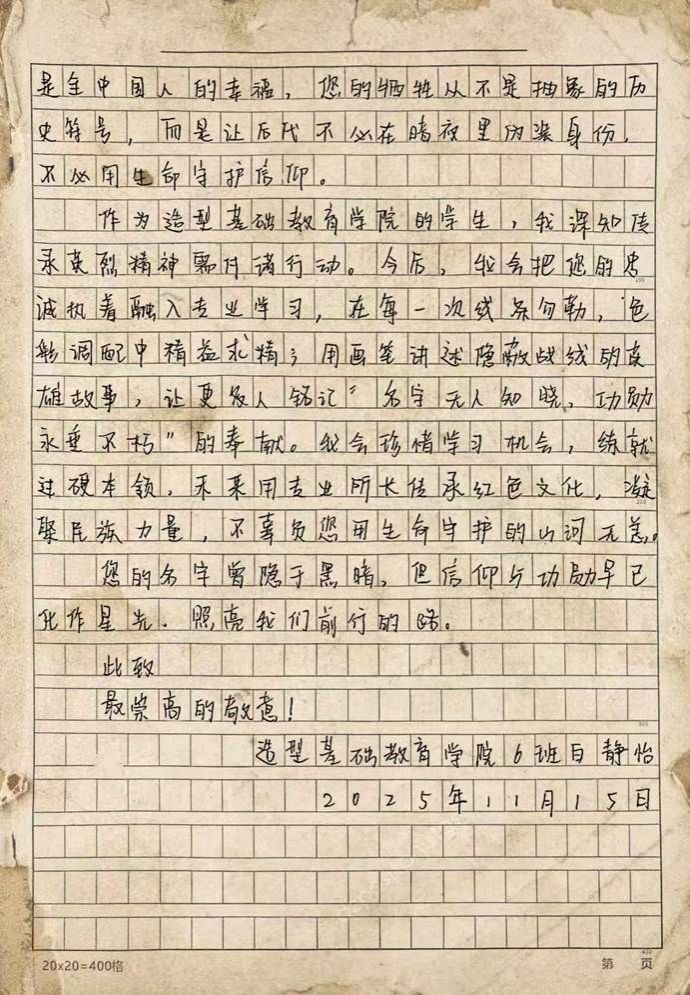 是全中国人的幸福，您的牺牲从不是抽象的历
史符号，而是让后代不必在暗夜里伪装身份，
不必用生命守护信仰。
作为造型基础教育学院的学生，我深知传
承英烈精神需付诸行动。今后，我会把您的忠
诚执着融入专业学习，在每一次线条勾勒，色
彩调配中精益求精；用画笔讲述隐蔽战线的英
雄故事，让更多人铭记“名字无人知晓，功勋
永垂不朽”的奉献。我会珍惜学习机会，练就
过硬本领，未来用专业所长传承红色文化，凝
聚民族力量，不辜负您用生命守护的山河无恙。
您的名字曾隐于黑暗，但信仰与功勋早已
化作星光．照亮我们前行的路。
此致
最崇高的敬意！
造型基础教育学院6班白静怡
2025年11月15日
20x20=400格 第 页